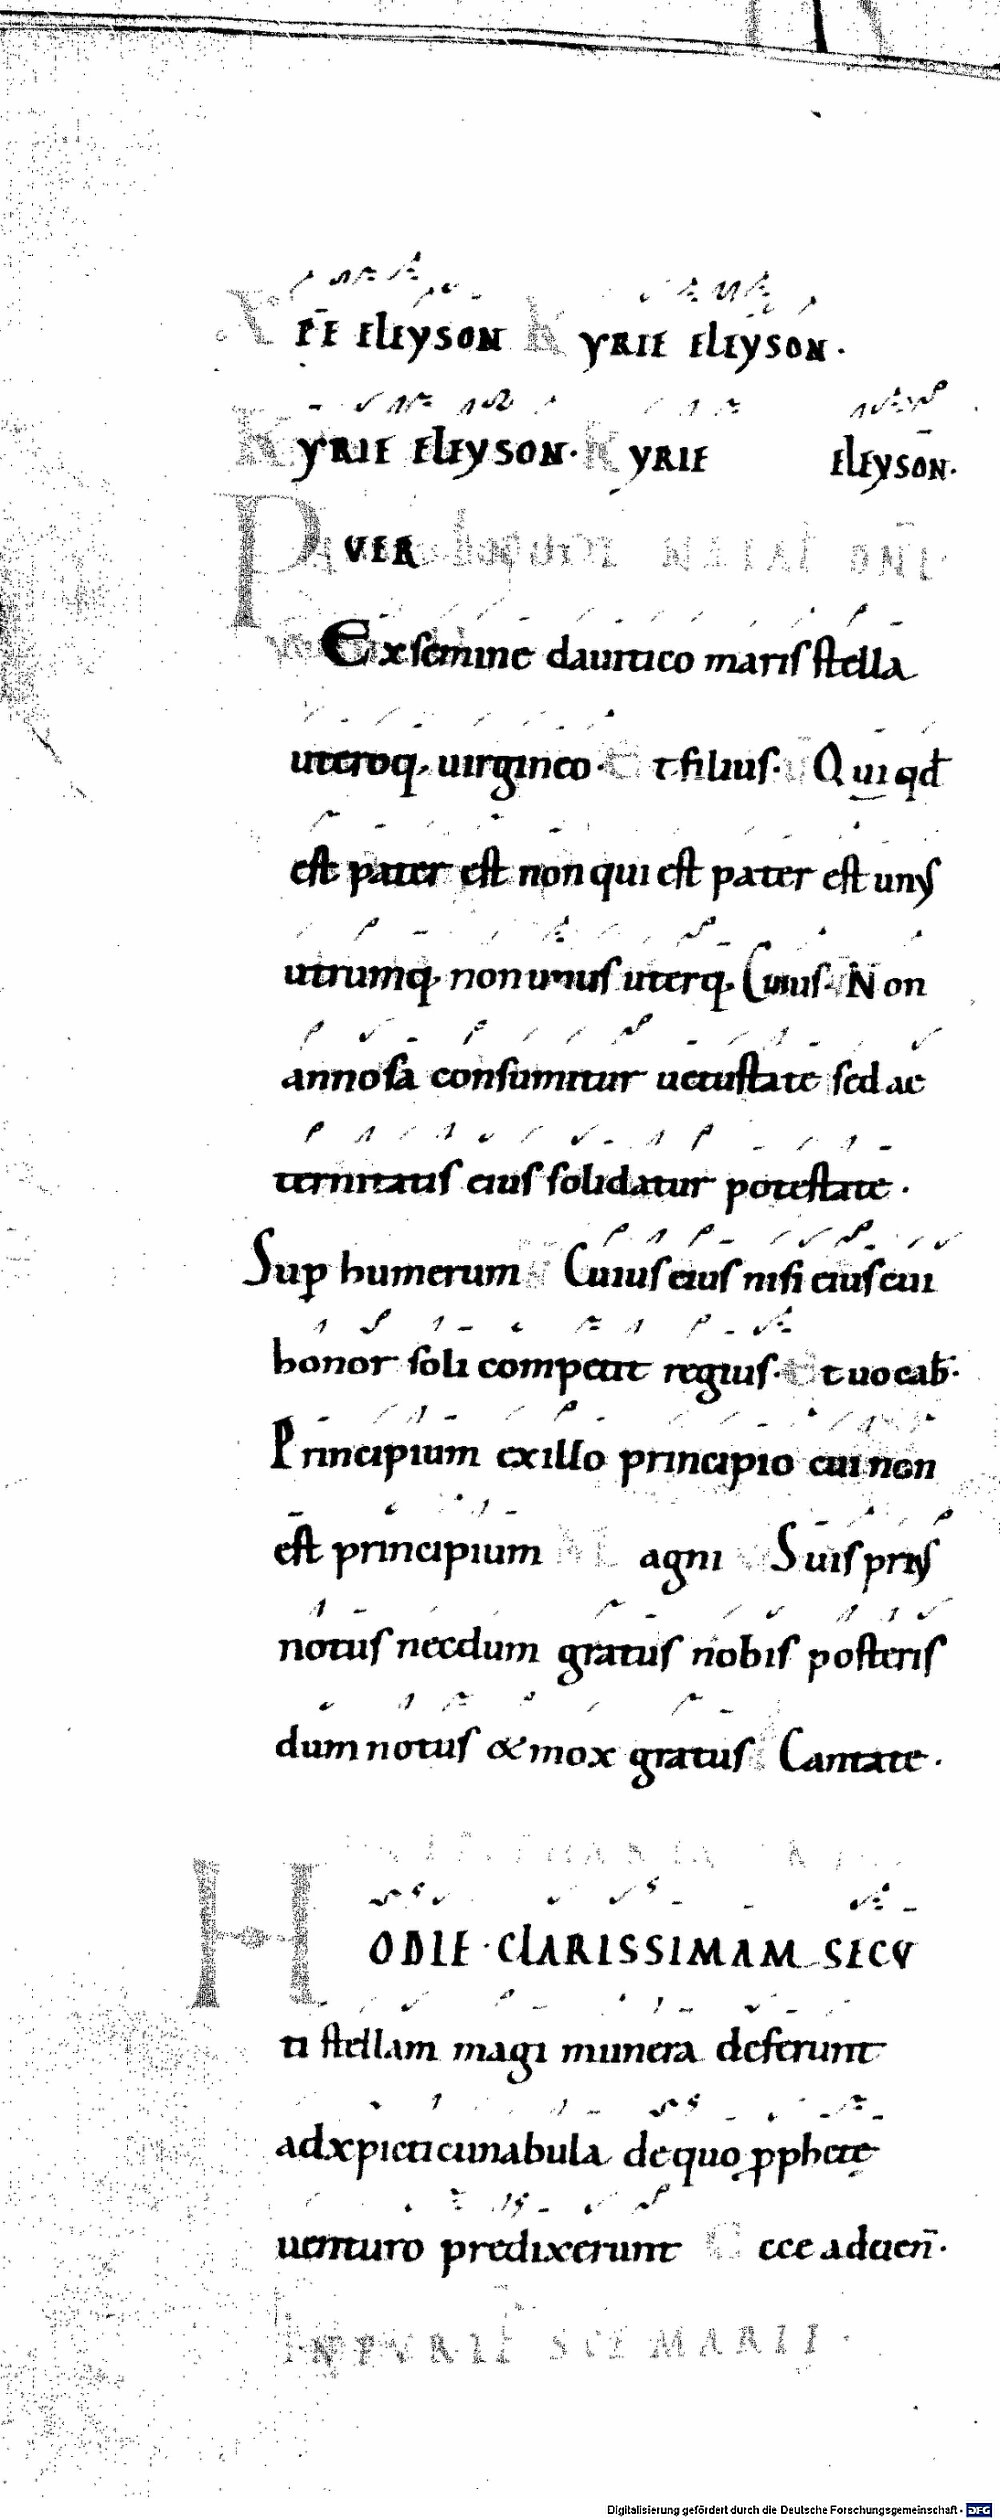 XPE ELEYSON KYRIE ELEYSON.
KYRIE ELEYSON. KYRIE ELEYSON.
PUER NATAL DNI
Ex semine dauitico maris stella
uteroq. uirgineo. Et filius. Qui qd
est pater est non qui est pater est unus
utrumq. non unus uterq. Cuius. Non
annosa consumitur uetustate sed ae
ternitatis eius solidatur potestate.
Sup humerum Cuius eius nisi eius cui
honor soli competit regius. Et uocab.
Principium ex illo principio cui non
est principium Magni Suis prius
notus necdum gratus nobis posteris
dum notus & mox gratus Cantate.
HODIE CLARISSIMAM SECU
ti stellam magi munera deferunt
ad xpicti cunabula de quo pphete
uenturo predixerunt Ecce aduen̄.
IN PURIF SCE MARIE.
Digitalisierung gefördert durch die Deutsche Forschungsgemeinschaft - DFG